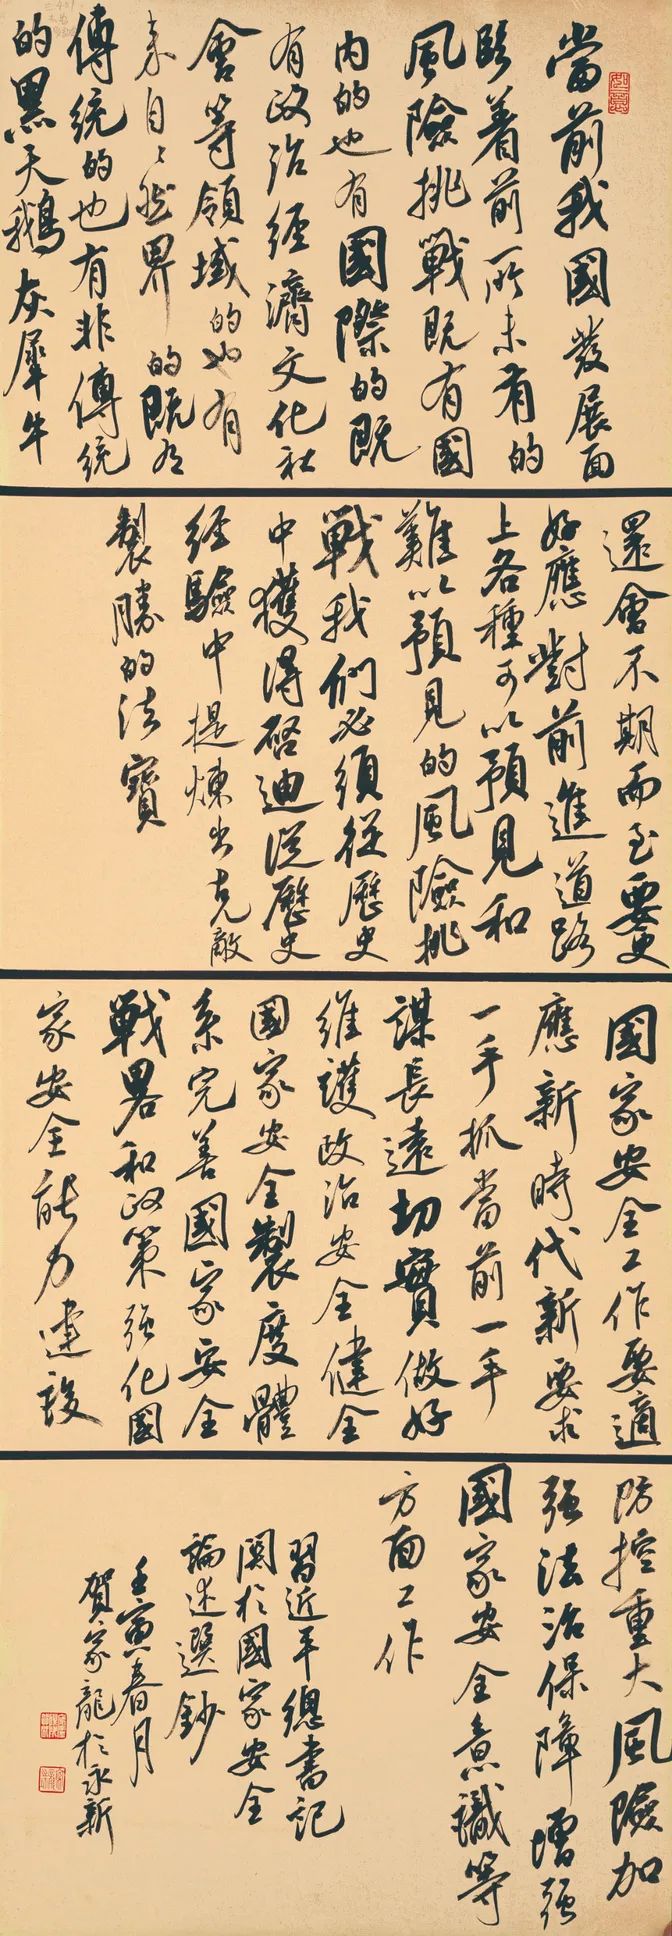 當前我國發展面
臨着前所未有的
風險挑戰既有國
内的也有國際的既
有政治經濟文化社
會等領域的也有
來自自然界的既有
傳統的也有非傳統
的黑天鵝灰犀牛
還會不期而至要更
好應對前進道路
上各種可以預見和
難以預見的風險挑
戰我們必須從歷史
中獲得啓迪從歷史
經驗中提煉出克敵
製勝的法寶
國家安全工作要適
應新時代新要求
一手抓當前一手
謀長遠切實做好
維護政治安全健全
國家安全製度體
系完善國家安全
戰畧和政策強化國
家安全能力建設
防控重大風險加
強法治保障增強
國家安全意識等
方面工作
習近平總書記
關於國家安全
論述選鈔
壬寅春月
賀家龍於永新